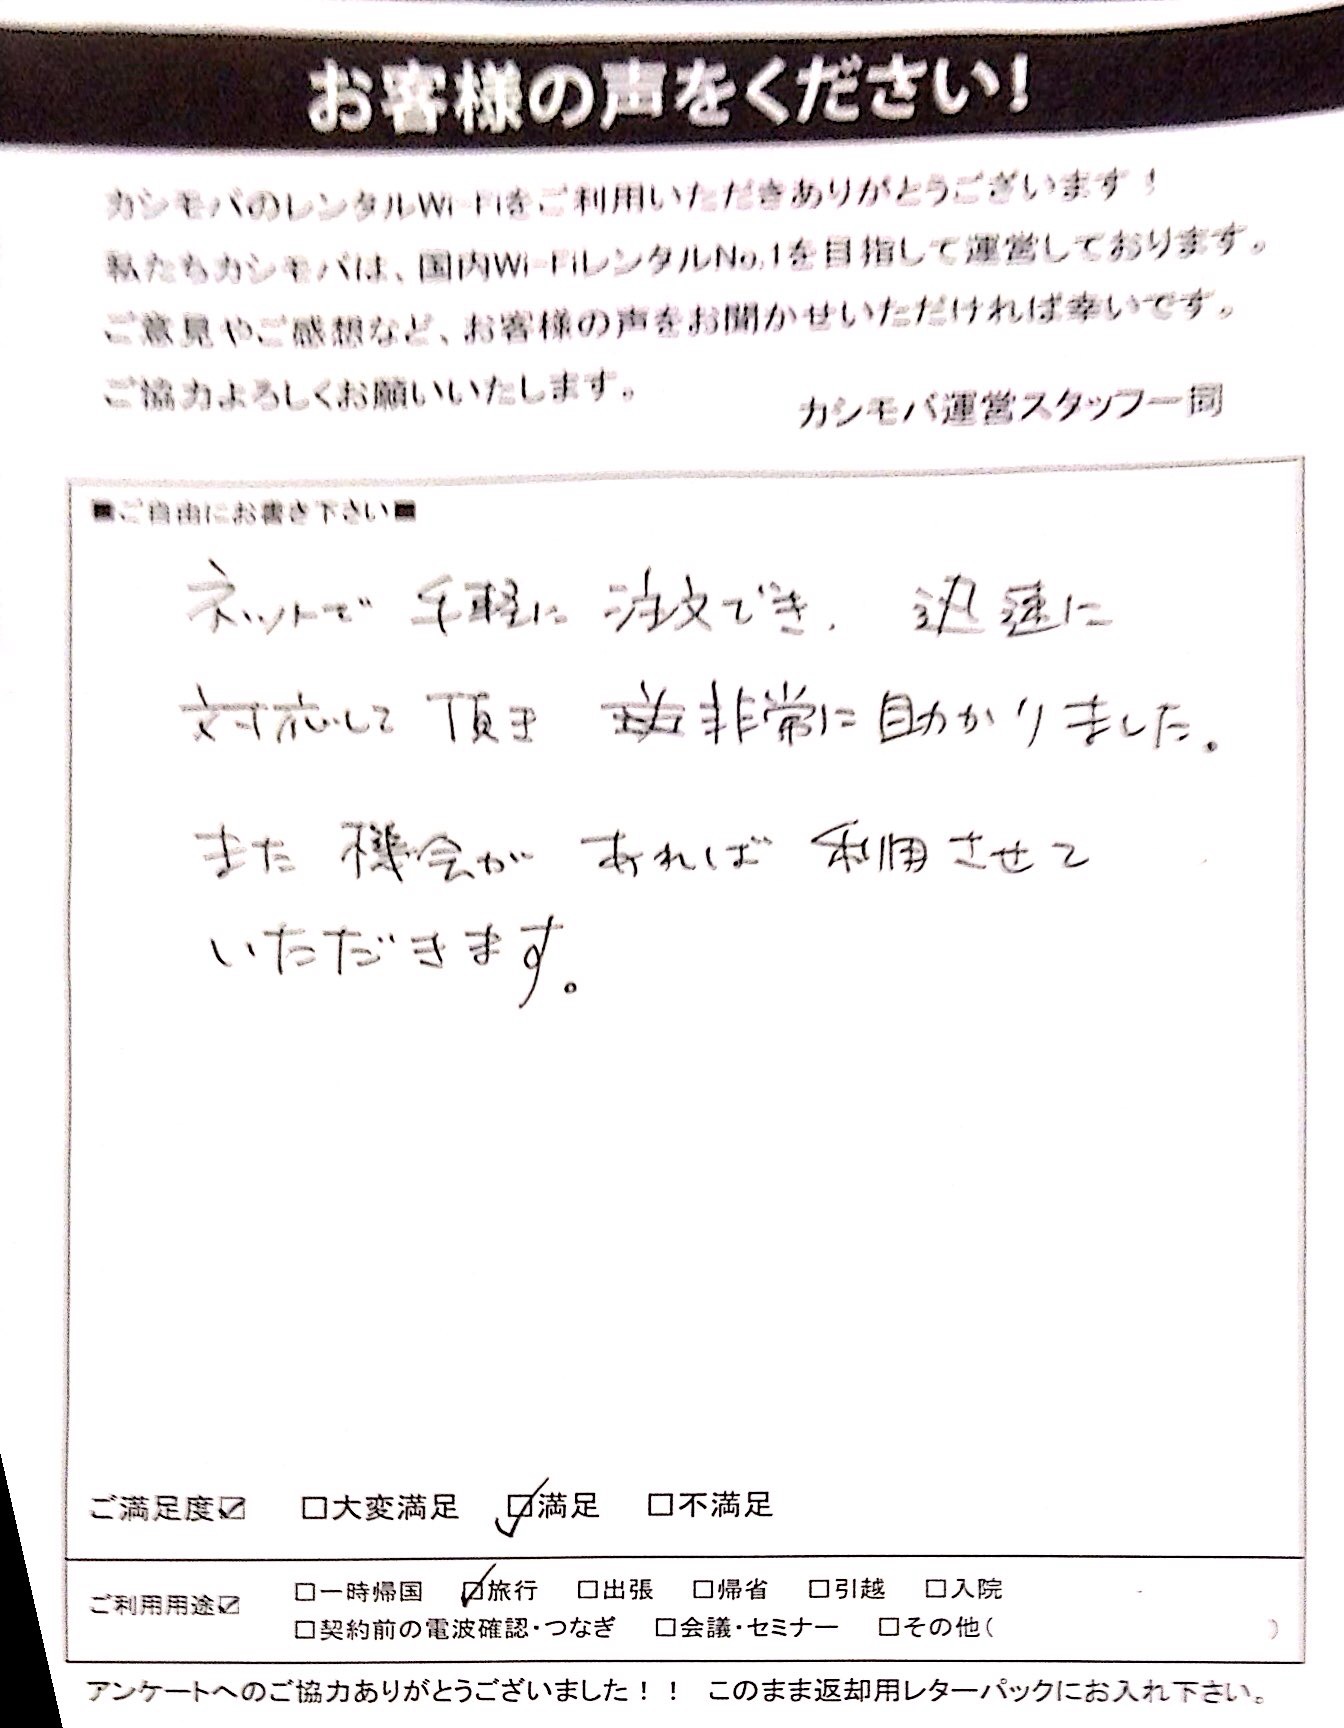 お客様の声をください!
カシモバのレンタルWi-Fiをご利用いただきありがとうございます！
私たちカシモバは、国内Wi-FiレンタルNo.1を目指して運営しております。
ご意見やご感想など、お客様の声をお聞かせいただければ幸いです。
ご協力よろしくお願いいたします。
カシモバ運営スタッフ一同
■ご自由にお書き下さい■
ネットで手軽に注文でき、迅速に
対応して頂き非常に助かりました。
また機会があれば利用させて
いただきます。
ご満足度☑ □大変満足 ☑満足 □不満足
ご利用用途☑ □一時帰国 ☑旅行 □出張 □帰省 □引越 □入院
□契約前の電波確認・つなぎ □会議・セミナー □その他( )
アンケートへのご協力ありがとうございました！！ このまま返却用レターパックにお入れ下さい。